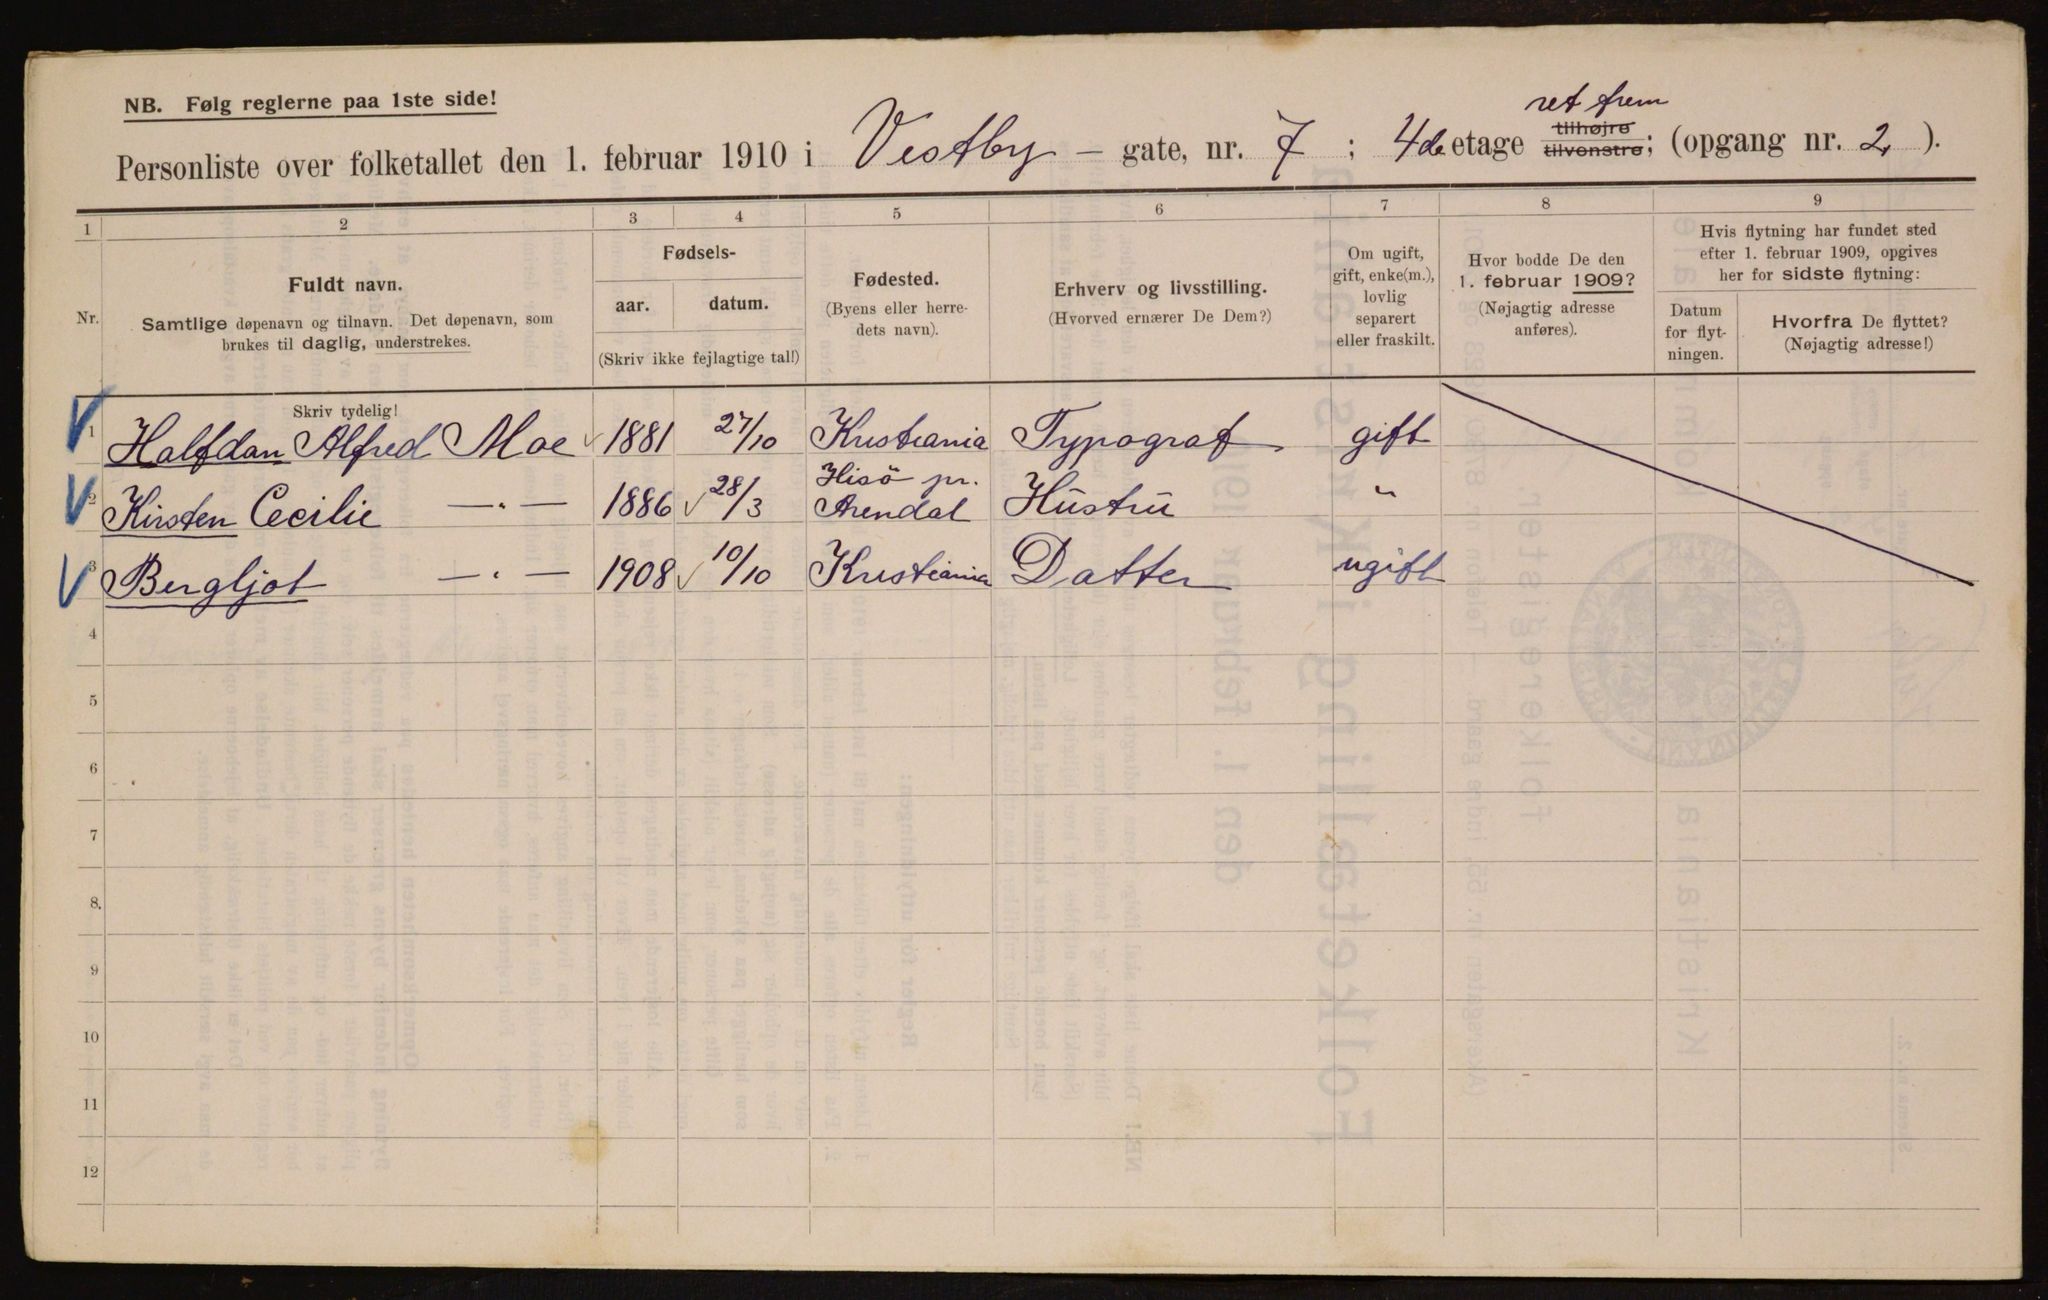 NB. Følg reglerne paa 1ste side!
ret frem
Personliste over folketallet den 1. februar 1910 i Vestby - gate, nr. 7; 4de etage tilhøjre tilvenstre; (opgang nr. 2, ).
1 2 3 4 5 6 7 8 9
Nr.
Fuldt navn.
Samtlige døpenavn og tilnavn. Det døpenavn, som
brukes til daglig, understrekes.
Fødsels-
aar. datum.
(Skriv ikke fejlagtige tal!)
Fødested.
(Byens eller herre-
dets navn).
Erhverv og livsstilling.
(Hvorved ernærer De Dem?)
Om ugift,
gift, enke(m.),
lovlig
separert
eller fraskilt.
Hvor bodde De den
1. februar 1909?
(Nøjagtig adresse
anføres).
Hvis flytning har fundet sted
efter 1. februar 1909, opgives
her for sidste flytning:
Datum
for flyt-
ningen.
Hvorfra De flyttet?
(Nøjagtig adresse!)
Skriv tydelig!
1 Halfdan Alfred Moe 1881 27/10 Kristiania Typograf gift
2 Kirsten Cecilie —"— 1886 28/3 Hisö pr. Arendal Hustru "
3 Bergljot —"— 1908 10/10 Kristiania Datter ugift
4
5
6
7
8
9
10
11
12